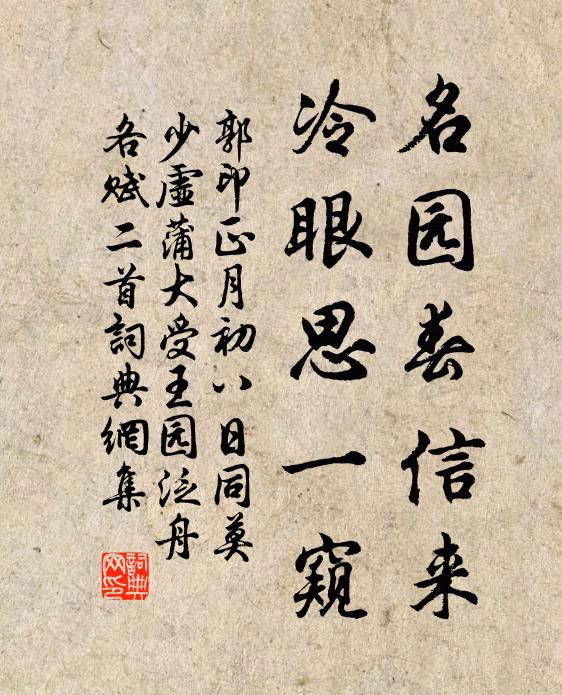 名园春信来
冷眼思一窥
郭印正月初八日同莫
少虚蒲大受王园泛舟
各赋二首詞典網集
詞典
网印